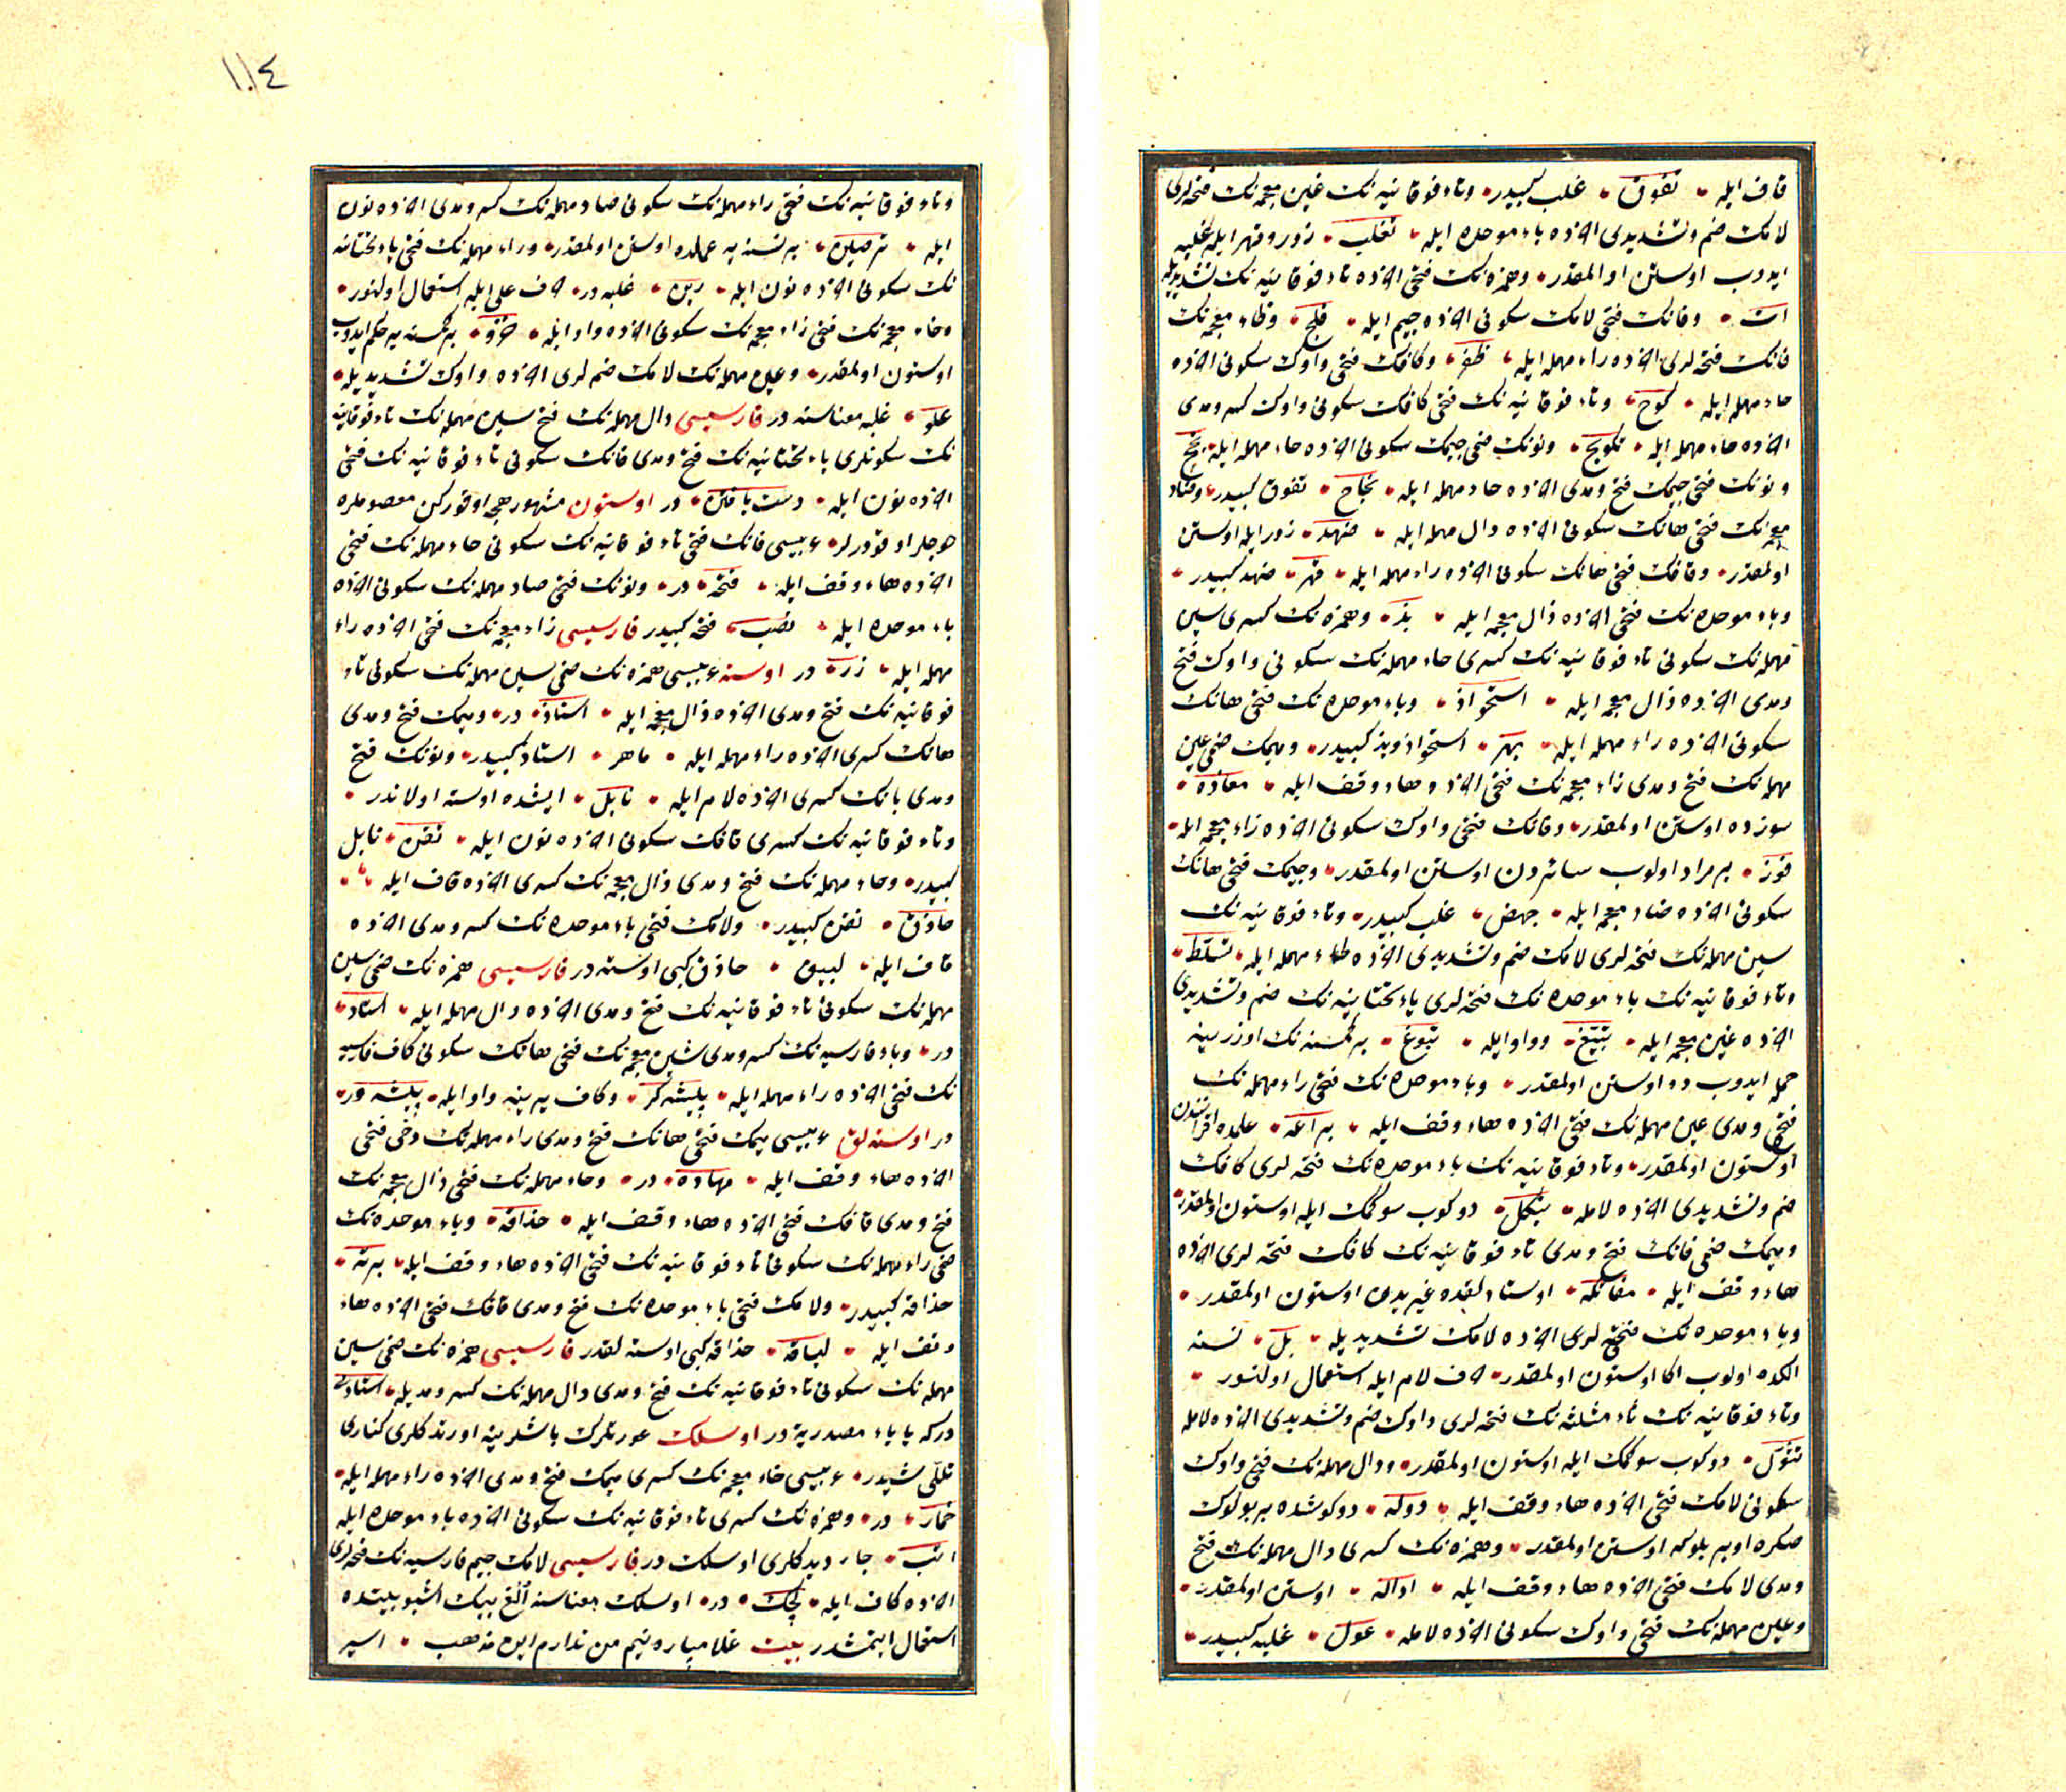 قاف ايله تفوق غلب كبيدر وتاء فوقانيه نك غين معجمه نك فتحه لرى
لامك ضم وتشديدى آخرده باء موحده ايله تغلب زور وقهر ايله غلبه
ايدوب اوستن اوالمقدر وهمزه نك فتحى آخرده تاء فوقانيه نك تشديديله
ات وفانك فتحى لامك سكونى آخرده جيم ايله فلج وظاء معجمه نك
فانك فتحه لرى آخرده راء مهمله ايله ظفر وكافك فتحى واوك سكونى آخرده
حاء مهمله ايله كوح وتاء فوقانيه نك فتحى كافك سكونى واوك كسر ومدى
آخرده حاء مهمله ايله تكويح ونونك ضمى جيمك سكونى آخرده حاء مهمله ايله نجح
ونونك فتحى جيمك فتح ومدى آخرده حاء مهمله ايله نجاح تفوق كبيدر وضاد
معجمه نك فتحى هانك سكونى آخرده دال مهمله ايله ضهد زور ايله اوستن
اولمقدر وقافك فتحى هانك سكونى آخرده راء مهمله ايله قهر ضهد كبيدر
وباء موحده نك فتحى آخرده ذال معجمه ايله بذ وهمزه نك كسرى سين
مهمله نك سكونى تاء فوقانيه نك كسرى حاء مهمله نك سكونى واوك فتح
ومدى آخرده ذال معجمه ايله استحواذ وباء موحده نك فتحى هانك
سكونى آخرده راء مهمله ايله بهر استحواذ وبذ كبيدر وميمك ضمى عين
مهمله نك فتح ومدى زاء معجمه نك فتحى آخرده هاء وقف ايله معازه
سوزده اوستن اولمقدر وفانك فتحى واوك سكونى آخرده زاء معجمه ايله
فوز بر مراد اولوب سائردن اوستن اولمقدر وجيمك فتحى هانك
سكونى آخرده ضاد معجمه ايله جهض غلب كبيدر وتاء فوقانيه نك
سين مهمله نك فتحه لرى لامك ضم وتشديدى آخرده طاء مهمله ايله تسلط
وتاء فوقانيه نك باء موحده نك فتحه لرى ياء تحتانيه نك ضم وتشديدى
آخرده غين معجمه ايله تبيغ وواو ايله تبوغ بر كمسنه نك اوزرينه
حمله ايدوب دو اوستن اولمقدر وباء موحده نك فتحى راء مهمله نك
فتحى ومدى عين مهمله نك فتحى آخرده هاء وقف ايله براعه علمده اقرانندن
اوستون اولمقدر وتاء فوقانيه نك باء موحده نك فتحه لرى كافك
ضم وتشديدى آخرده لامله تبكل دوكوب سوكمك ايله اوستون اولمقدر
وميمك ضمى فانك فتح ومدى تاء فوقانيه نك كافك فتحه لرى آخرده
هاء وقف ايله مفاتكه اوستادلقده غيريدن اوستون اولمقدر
وباء موحده نك فتحه لرى آخرده لامك تشديديله بل نسنه
الكده اولوب اكا اوستون اولمقدر حرف لام ايله استعمال اولنور
وتاء فوقانيه نك ثاء مثلثه نك فتحه لرى واوك ضم وتشديدى آخرده لامله
تثول دوكوب سوكمك ايله اوستون اولمقدر ودال مهمله نك فتحى واوك
سكونى لامك فتحى آخرده هاء وقف ايله دوله دوكوشده بر بولوك
صكره اوبر بلوكه اوستن اولمقدر وهمزه نك كسرى دال مهمله نك فتح
ومدى لامك فتحى آخرده هاء وقف ايله اداله اوستن اولمقدر
وعين مهمله نك فتحى واوك سكونى آخرده لامله عول غلبه كبيدر
١١٤
وتاء فوقانيه نك فتحى راء مهمله نك سكونى صاد مهمله نك كسر ومدى آخرده نون
ايله ترصين بر نسنه يه عملده اوستن اولمقدر وراء مهمله نك فتحى ياء تحتانيه
نك سكونى آخرده نون ايله رين غلبه در حرف على ايله استعمال اولنور
وخاء معجمه نك فتحى زاء معجمه نك سكونى آخرده واو ايله خزو بر كمسنه يه حكم ايدوب
اوستون اولمقدر وعين مهمله نك لامك ضم لرى آخرده واوك تشديديله
علو غلبه معناسنه در فارسيسى دال مهمله نك فتح سين مهمله نك تاء فوقانيه
نك سكونلرى ياء تحتانيه نك فتح ومدى فانك سكونى تاء فوقانيه نك فتحى
آخرده نون ايله دست يافتن در اوستون مشهور هجه اوقوركن معصوملره
خوجلر اوقودرلر عربيسى فانك فتحى تاء فوقانيه نك سكونى حاء مهمله نك فتحى
آخرده هاء وقف ايله فتحه در ونونك فتحى صاد مهمله نك سكونى آخرده
باء موحده ايله نصب فتحه كبيدر فارسيسى زاء معجمه نك فتحى آخرده راء
مهمله ايله زر در اوسته عربيسى همزه نك ضمى سين مهمله نك سكونى تاء
فوقانيه نك فتح ومدى آخرده ذال معجمه ايله استاذ در وميمك فتح ومدى
هانك كسرى آخرده راء مهمله ايله ماهر استاذ كبيدر ونونك فتح
ومدى بانك كسرى آخرده لام ايله نابل ايشده اوسته اولاندر
وتاء فوقانيه نك كسرى قافك سكونى آخرده نون ايله تقن نابل
كبيدر وحاء مهمله نك فتح ومدى ذال معجمه نك كسرى آخرده قاف ايله
حاذق تقن كبيدر ولامك فتحى باء موحده نك كسر ومدى آخرده
قاف ايله لبيق حاذق كبى اوسته در فارسيسى همزه نك ضمى سين
مهمله نك سكونى تاء فوقانيه نك فتح ومدى آخرده دال مهمله ايله استاد
در وباء فارسيه نك كسر ومدى شين معجمه نك فتحى هانك سكونى كاف فارسيه
نك فتحى آخرده راء مهمله ايله پيشه گر وكاف يرينه واو ايله پيشه ور
در اوسته لق عربيسى ميمك فتحى هانك فتح ومدى راء مهمله نك دخى فتحى
آخرده هاء وقف ايله مهاره در وحاء مهمله نك فتحى ذال معجمه نك
فتح ومدى قافك فتحى آخرده هاء وقف ايله حذاقه وباء موحده نك
ضمى راء مهمله نك سكونى تاء فوقانيه نك فتحى آخرده هاء وقف ايله برته
حذاقه كبيدر ولامك فتحى باء موحده نك فتح ومدى قافك فتحى آخرده هاء
وقف ايله لباقه حذاقه كبى اوسته لقدر فارسيسى همزه نك ضمى سين
مهمله نك سكونى تاء فوقانيه نك فتح ومدى دال مهمله نك كسر ومديله استادى
دركه ياياء مصدريه در اوسلك عورتلرك باشلرينه اورتدكلرى كنارى
تللى شيدر عربيسى خاء معجمه نك كسرى ميمك فتح ومدى آخرده راء مهمله ايله
خمار در وهمزه نك كسرى تاء فوقانيه نك سكونى آخرده باء موحده ايله
اتب جار ديدكلرى اوسلك در فارسيسى لامك جيم فارسيه نك فتحه لرى
آخرده كاف ايله لچك در اوسلك معناسنه الغ بيك اشبو بيتده
استعمال ايتمشدر بيت غلامباره نيم من ندارم اين مذهب اسير